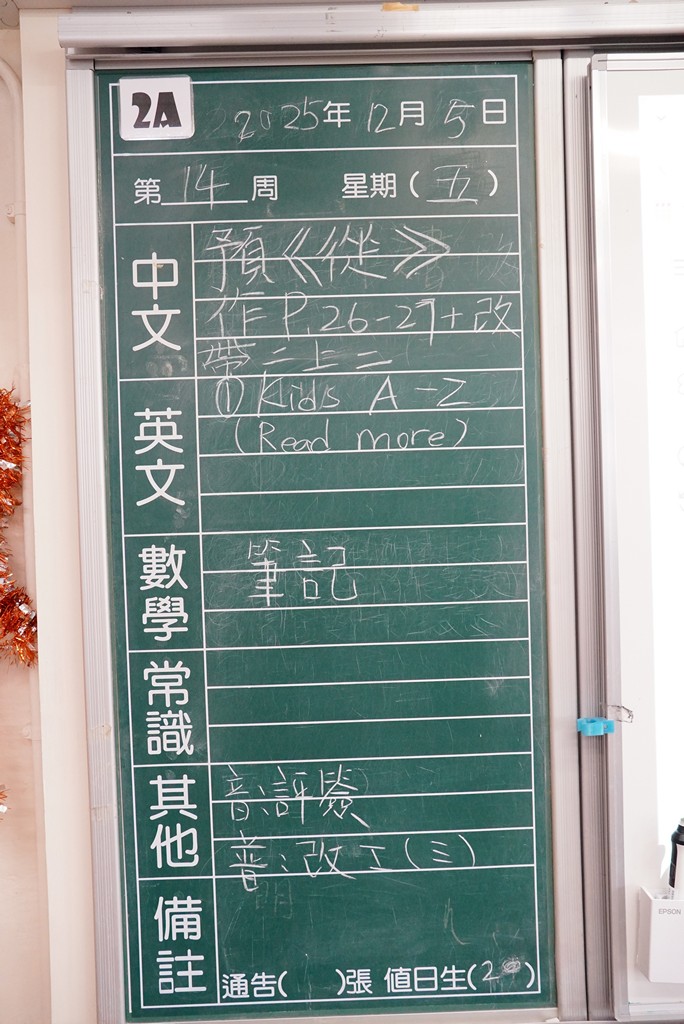 2A
2025年12月5日
第14周 星期(五)
中文
預《從》
作 P.26-27+改
帶二上二
英文
① Kids A-Z
(Read more)
數學
筆記
常識
其他
音:評簽
普:改工(三)
備註
通告( )張 值日生(2)
EPSON